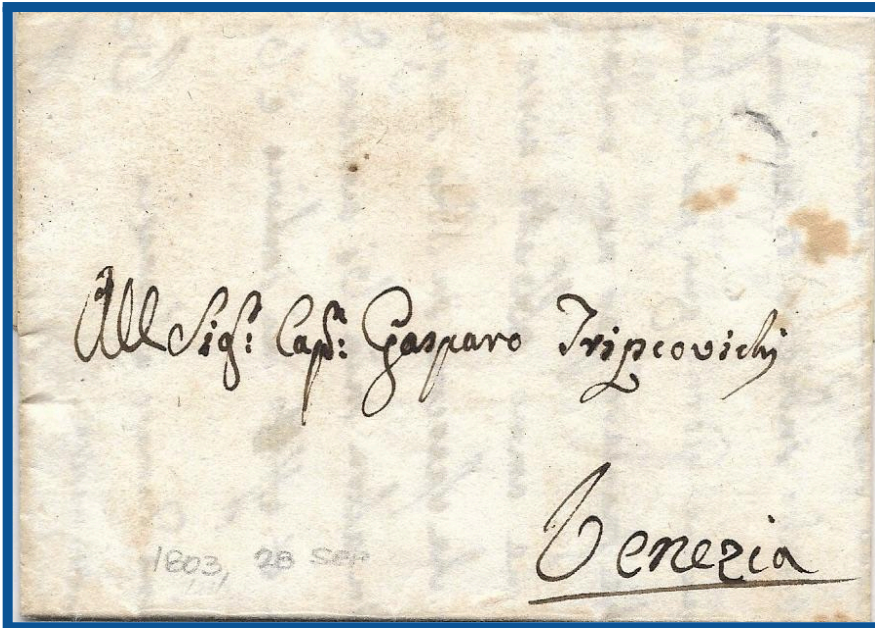 All Sig.r: Cap.n: Gasparo Tripcovichj
Venezia
1803, 28 Sep